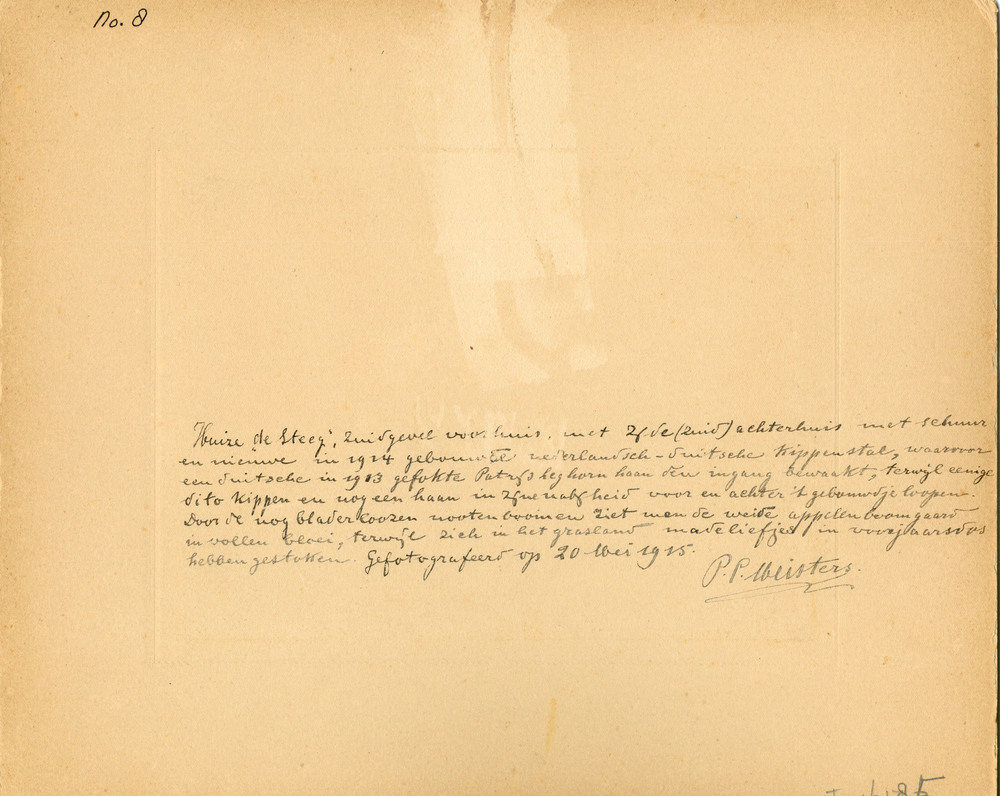 No. 8
"Huize de Steeg", Zuidgevel voorhuis, met zijde (zuid) achterhuis met schuur
en nieuwe in 1914 gebouwde nederlandsch-duitsche Kippenstal, waarvoor
een duitsche in 1913 gefokte Patrijs leghorn haan den ingang bewaakt, terwijl eenige
dito Kippen en nog een haan in zijne nabijheid voor en achter 't gebouwdje loopen.
Door de nog bladerloozen nootenboomen ziet men de weide appelenboomgaard
in vollen bloei, terwijl zich in het grasland madeliefjes in voorjaarsdos
hebben gestoken. Gefotografeerd op 20 Mei 1915.
P.P. Meisters.